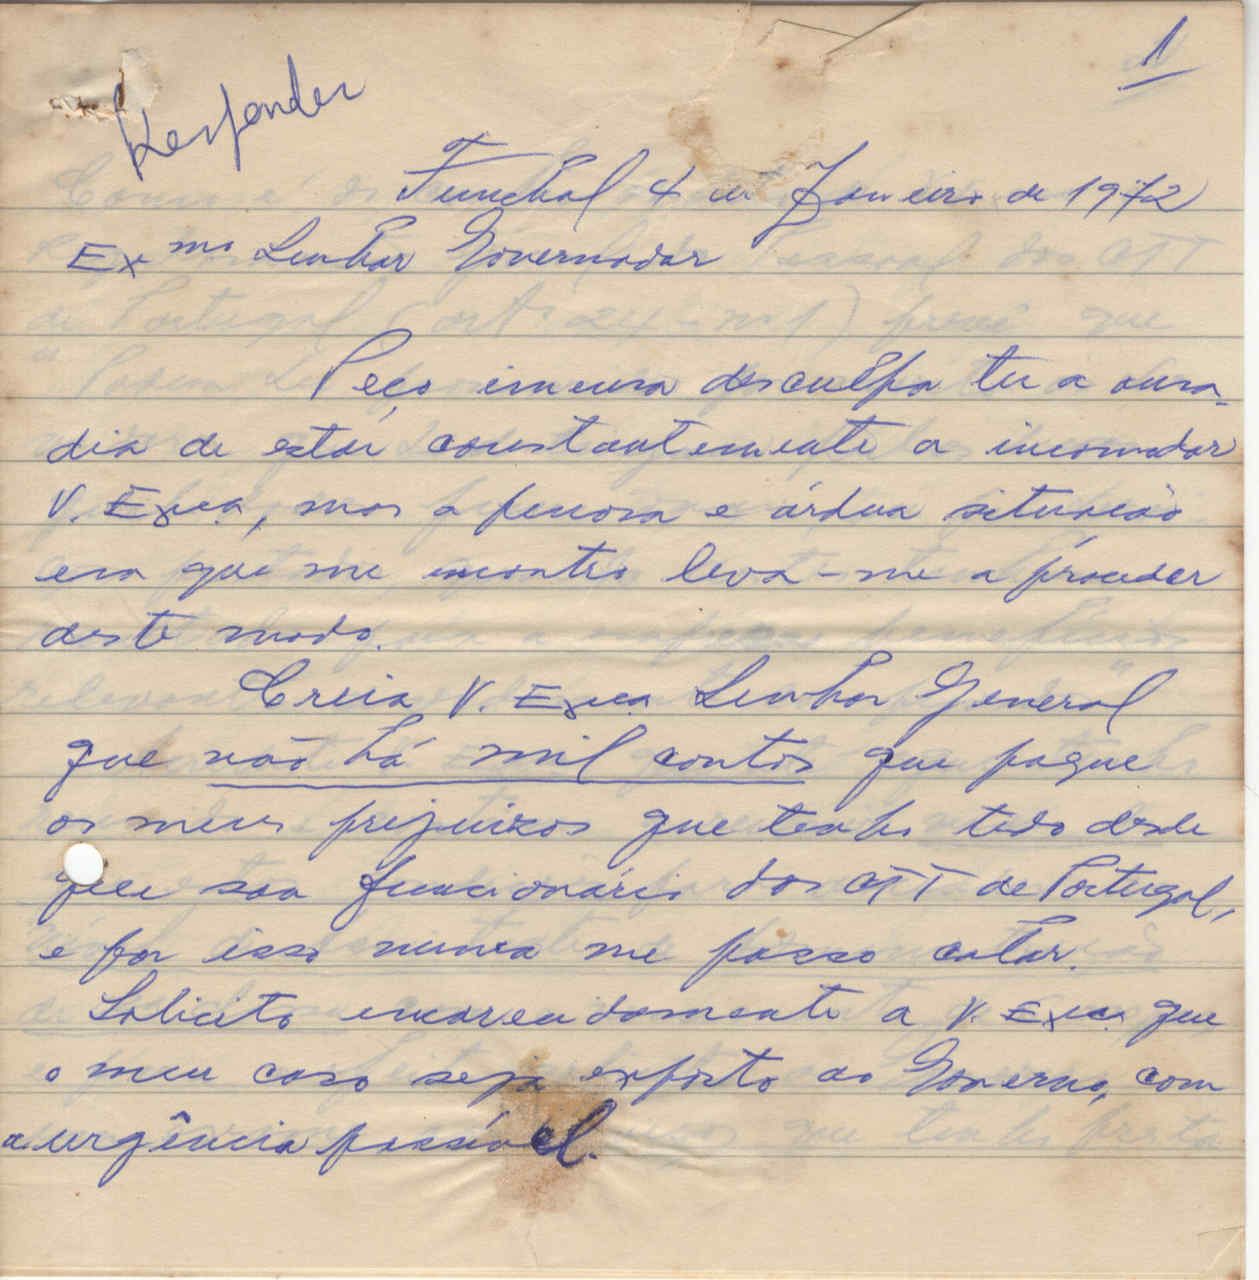 1
Responder
Funchal 4 de Janeiro de 1972
Exmo Senhor Governador
Peço imensa desculpa ter a ousa-
dia de estar constantemente a incomodar
V. Exca, mas a penosa e árdua situação
em que me encontro leva-me a proceder
deste modo.
Creia V. Exca Senhor General
que não há mil contos que pague
os meus prejuizos que tenho tido desde
que sou funcionário dos CTT de Portugal,
e por isso nunca me posso calar.
Solicito encarecidamente a V. Exca que
o meu caso seja exposto ao Governo, com
a urgência possível.